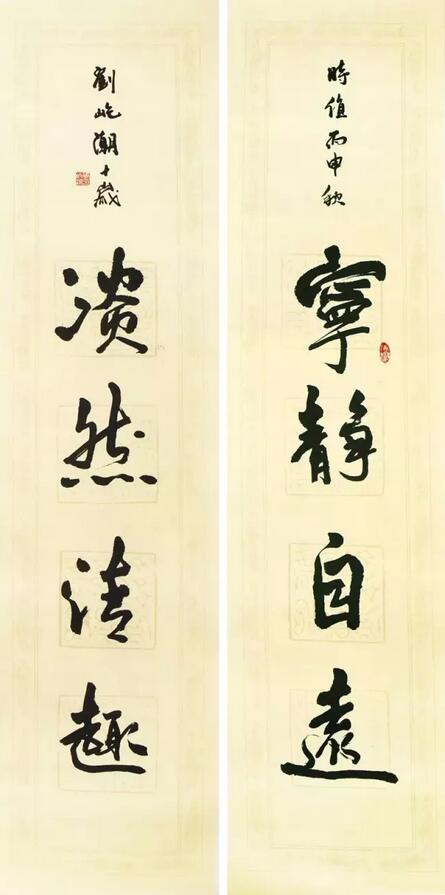 時值丙申秋
寧静自遠
然清趣
劉屹潮十歲